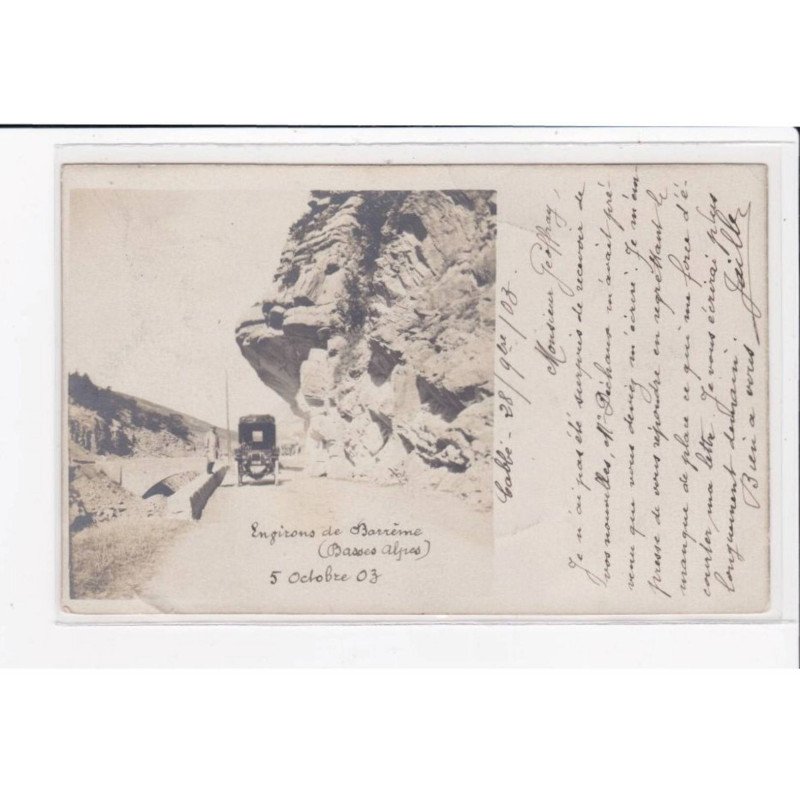 Environs de Barrême
(Basses Alpes)
5 Octobre 03
28/9bre/03.
Monsieur Geoffray,
Je n'ai pas été surpris de recevoir de
vos nouvelles, Mr Péchaux m'avait pré-
venu que vous deviez m'écrire. Je m'em-
presse de vous répondre en regrettant le
manque de place ce qui me force d'é-
courter ma lettre. Je vous écrirai plus
longuement demain.
Bien à vous